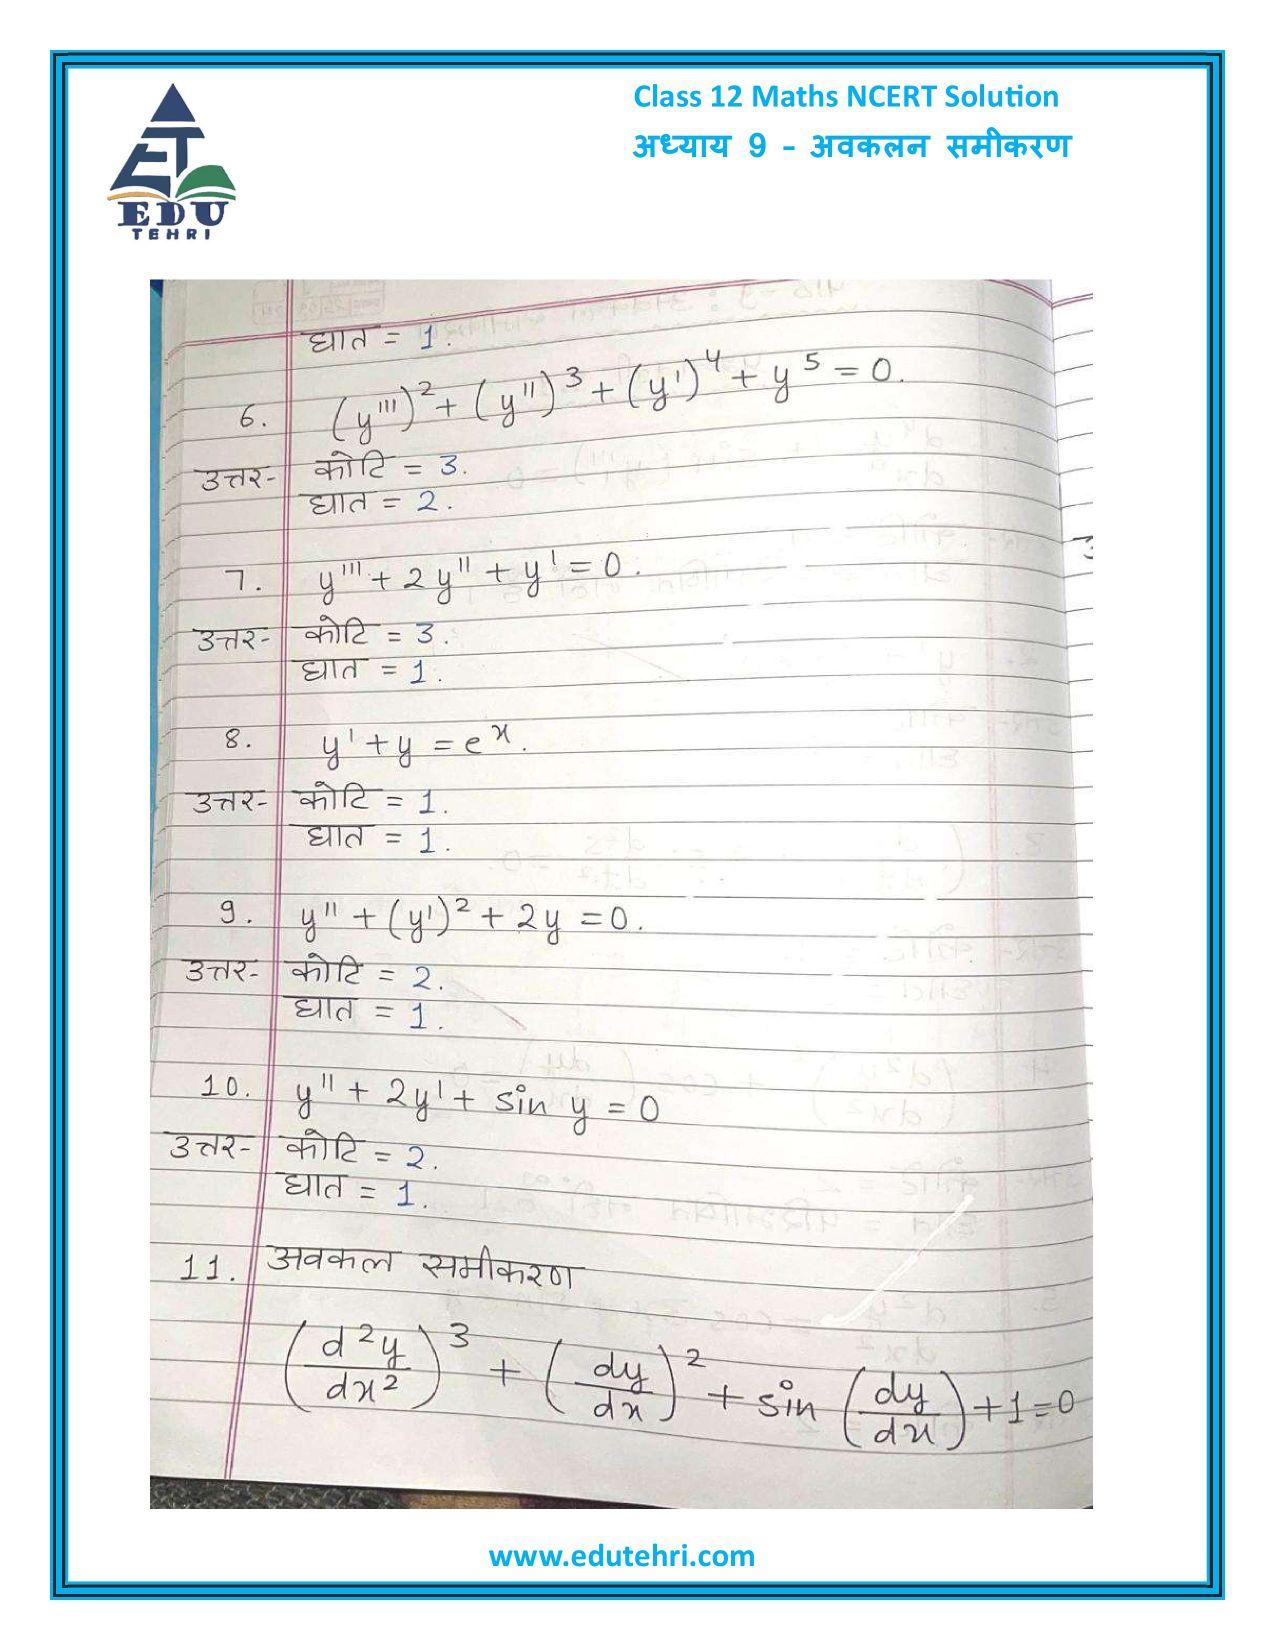 Class 12 Maths NCERT Solution
अध्याय 9 - अवकलन समीकरण
EDU
TEHRI
घात = 1.
6. (y''')² + (y'')³ + (y')⁴ + y⁵ = 0.
उत्तर- कोटि = 3.
घात = 2.
7. y''' + 2y'' + y' = 0.
उत्तर- कोटि = 3.
घात = 1.
8. y' + y = eˣ.
उत्तर- कोटि = 1.
घात = 1.
9. y'' + (y')² + 2y = 0.
उत्तर- कोटि = 2.
घात = 1.
10. y'' + 2y' + sin y = 0
उत्तर- कोटि = 2.
घात = 1.
11. अवकल समीकरण
(d²y/dx²)³ + (dy/dx)² + sin (dy/dx) + 1 = 0
www.edutehri.com